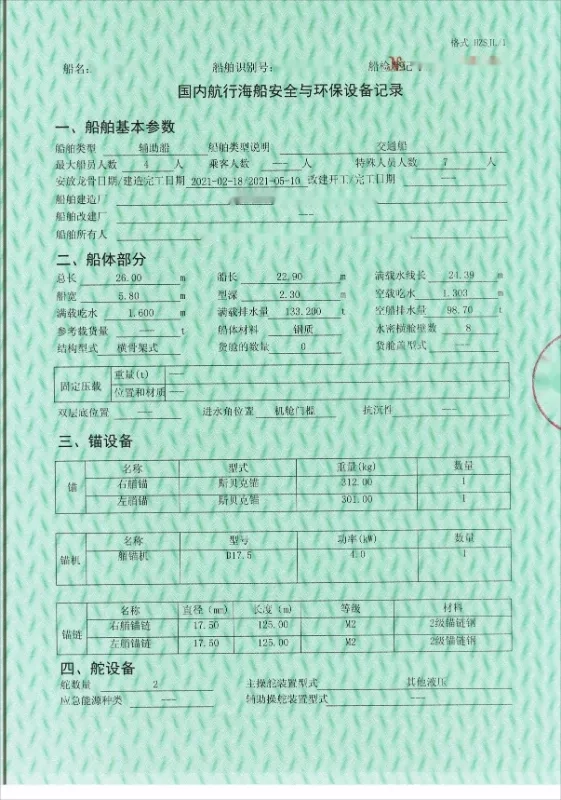 格式 HZSJL/1
船名: 船舶识别号: 船检登记号
国内航行海船安全与环保设备记录
一、船舶基本参数
船舶类型 辅助船 船舶类型说明 交通船
最大船员人数 4 人 乘客人数 --- 人 特殊人员人数 7 人
安放龙骨日期/建造完工日期 2021-02-18/2021-05-10 改建开工/完工日期 ---
船舶建造厂
船舶改建厂 ---
船舶所有人
二、船体部分
总长 26.00 m 船长 22.90 m 满载水线长 24.39 m
船宽 5.80 m 型深 2.30 m 空载吃水 1.303 m
满载吃水 1.600 m 满载排水量 133.200 t 空船排水量 98.70 t
参考载货量 --- t 船体材料 钢质 水密横舱壁数 8
结构型式 横骨架式 货舱的数量 0 货舱盖型式 ---
固定压载 重量(t) ---
位置和材质 ---
双层底位置 --- 进水角位置 机舱门槛 抗沉性 ---
三、锚设备
锚 名称 型式 重量(kg) 数量
右艏锚 斯贝克锚 312.00 1
左艏锚 斯贝克锚 301.00 1
锚机 名称 型号 功率(kW) 数量
艏锚机 D17.5 4.0 1
锚链 名称 直径(mm) 长度(m) 等级 材料
右艏锚链 17.50 125.00 M2 2级锚链钢
左艏锚链 17.50 125.00 M2 2级锚链钢
四、舵设备
舵数量 2 主操舵装置型式 其他液压
应急能源种类 --- 辅助操舵装置型式 ---